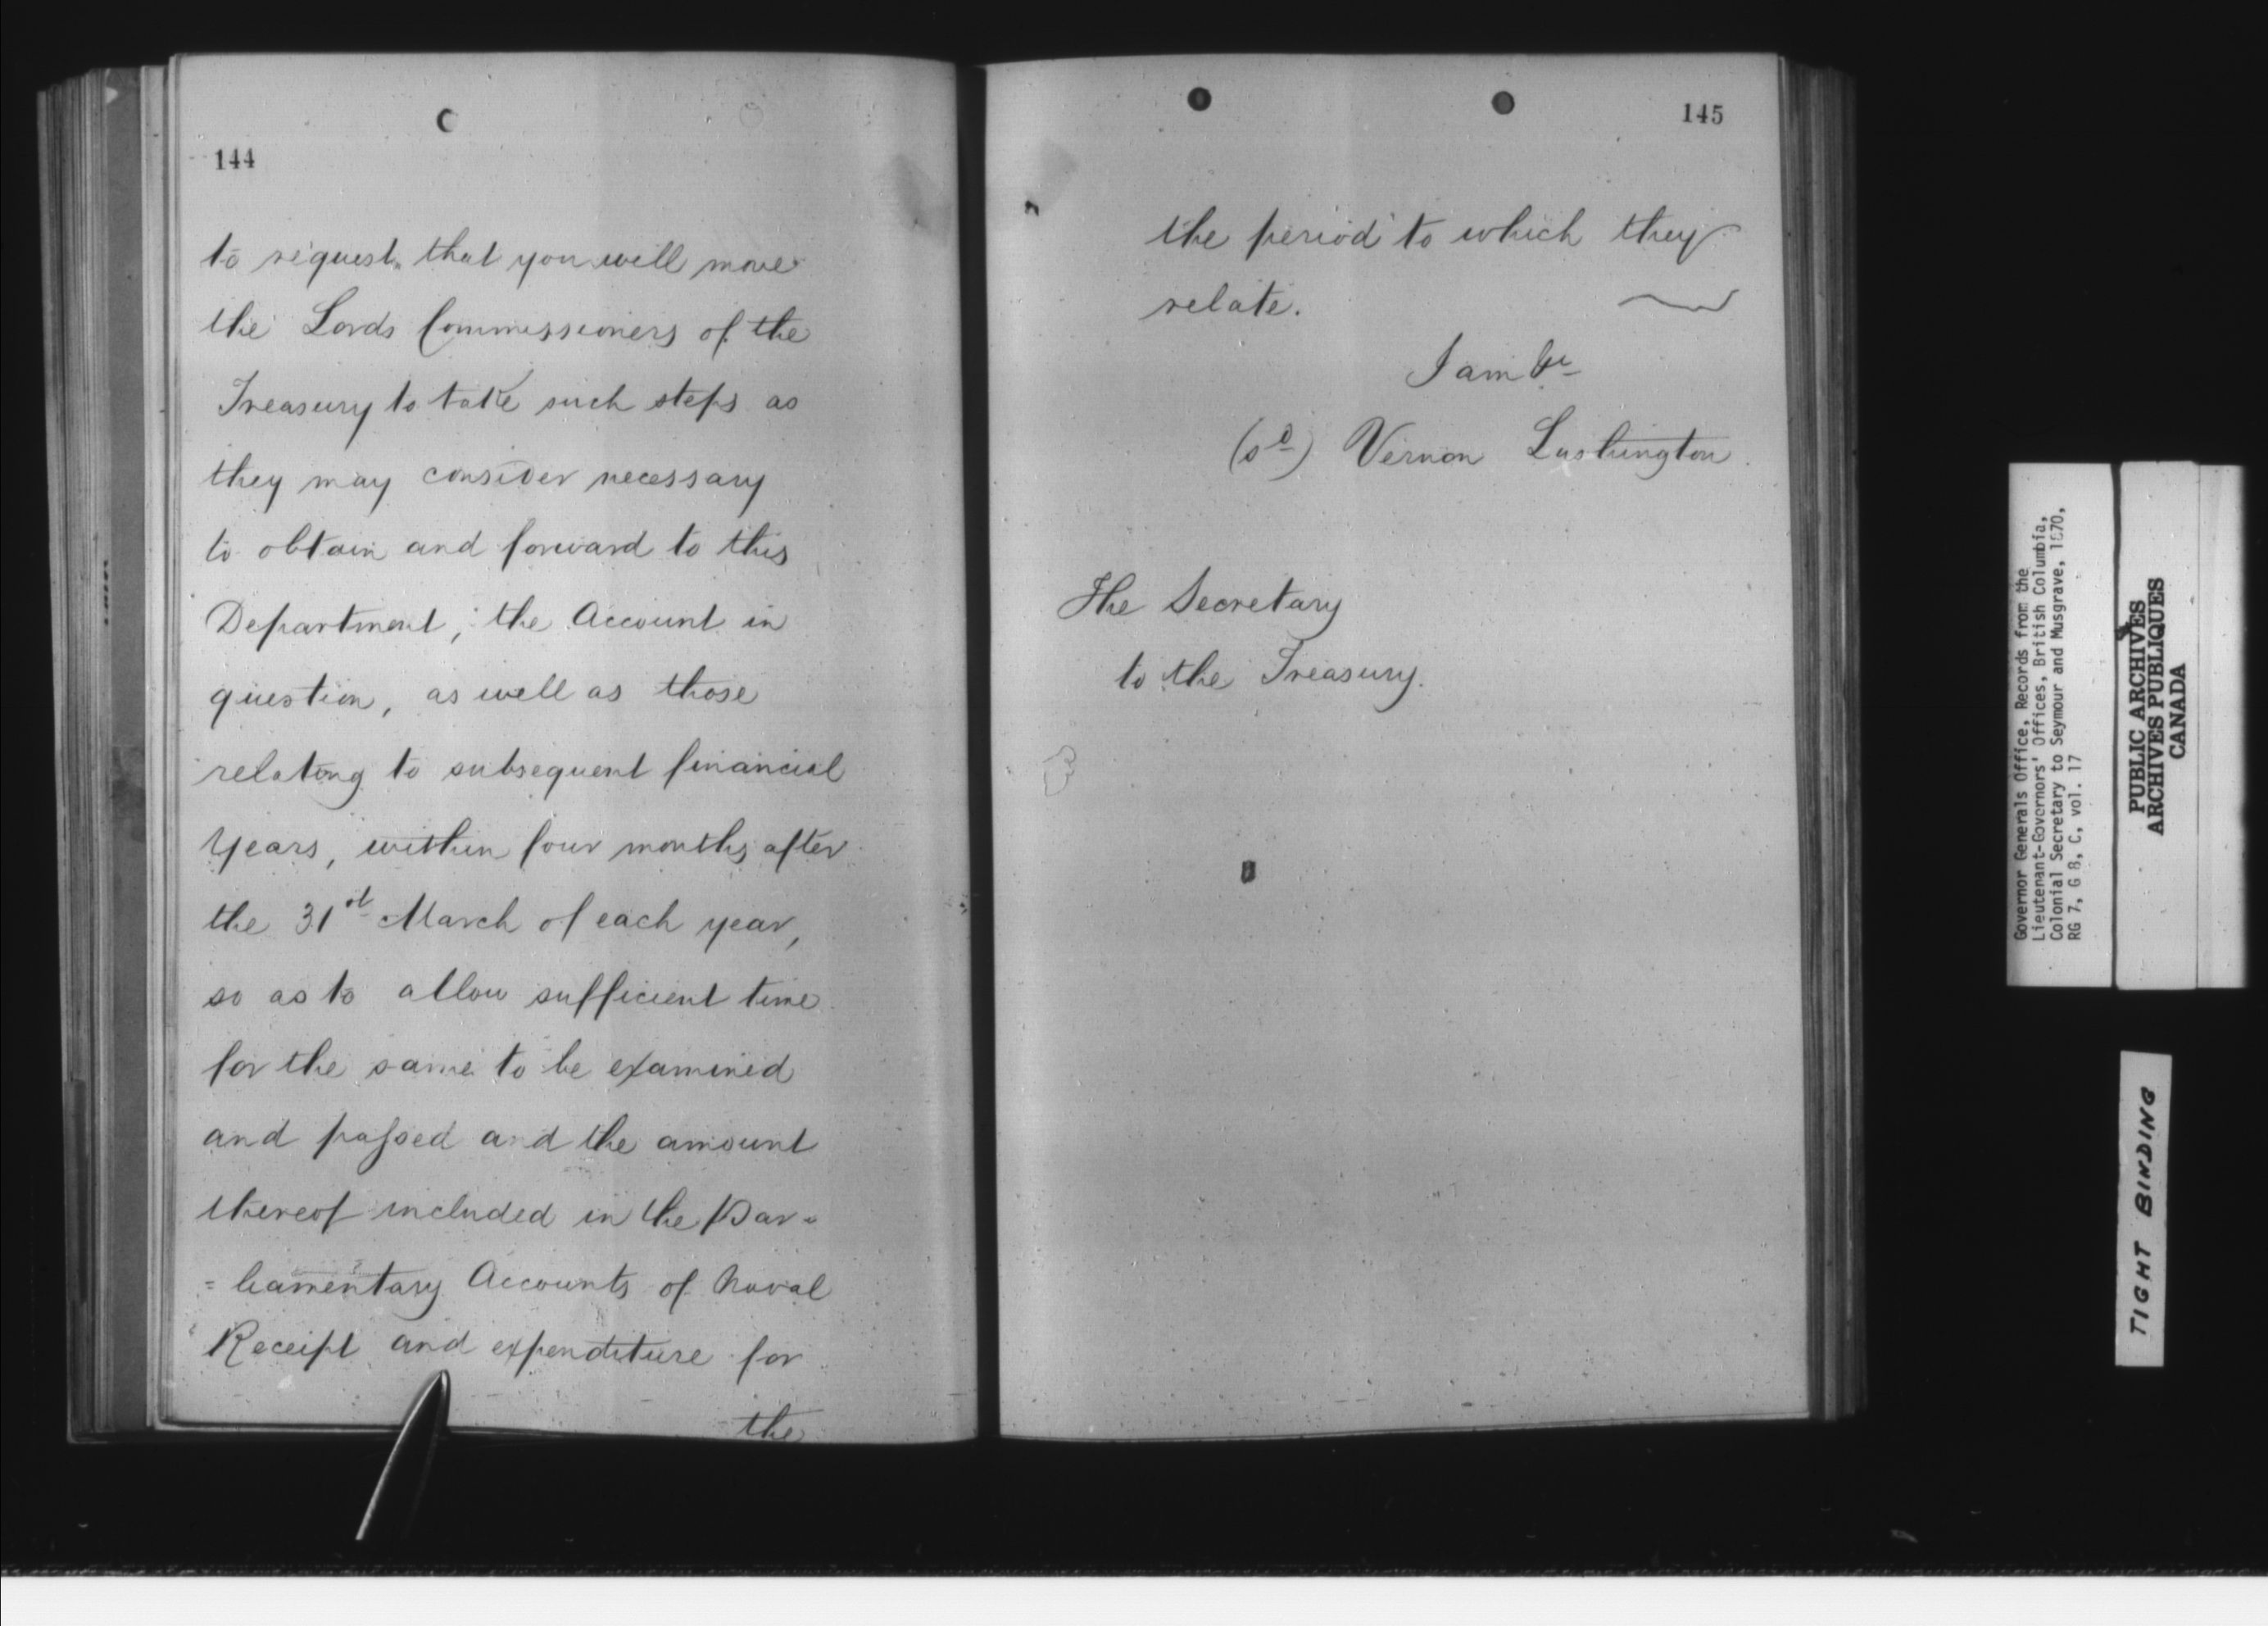 144
to request that you will move
the Lords Commissioners of the
Treasury to take such steps as
they may consider necessary
to obtain and forward to this
Department, the Account in
question, as well as those
relating to subsequent financial
years, within four months after
the 31st March of each year,
so as to allow sufficient time
for the same to be examined
and passed and the amount
thereof included in the Par-
=liamentary Accounts of Naval
Receipt and expenditure for
the
145
the period to which they
relate.
I am &c
(sd) Vernon Lushington
The Secretary
to the Treasury.
Governor Generals Office, Records from the
Lieutenant-Governors' Offices, British Columbia,
Colonial Secretary to Seymour and Musgrave, 1870,
RG 7, G 8, C, vol. 17
PUBLIC ARCHIVES
ARCHIVES PUBLIQUES
CANADA
TIGHT BINDING